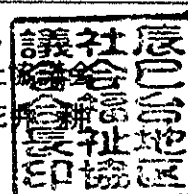 辰巳台地区
社会福祉協
議会会長印